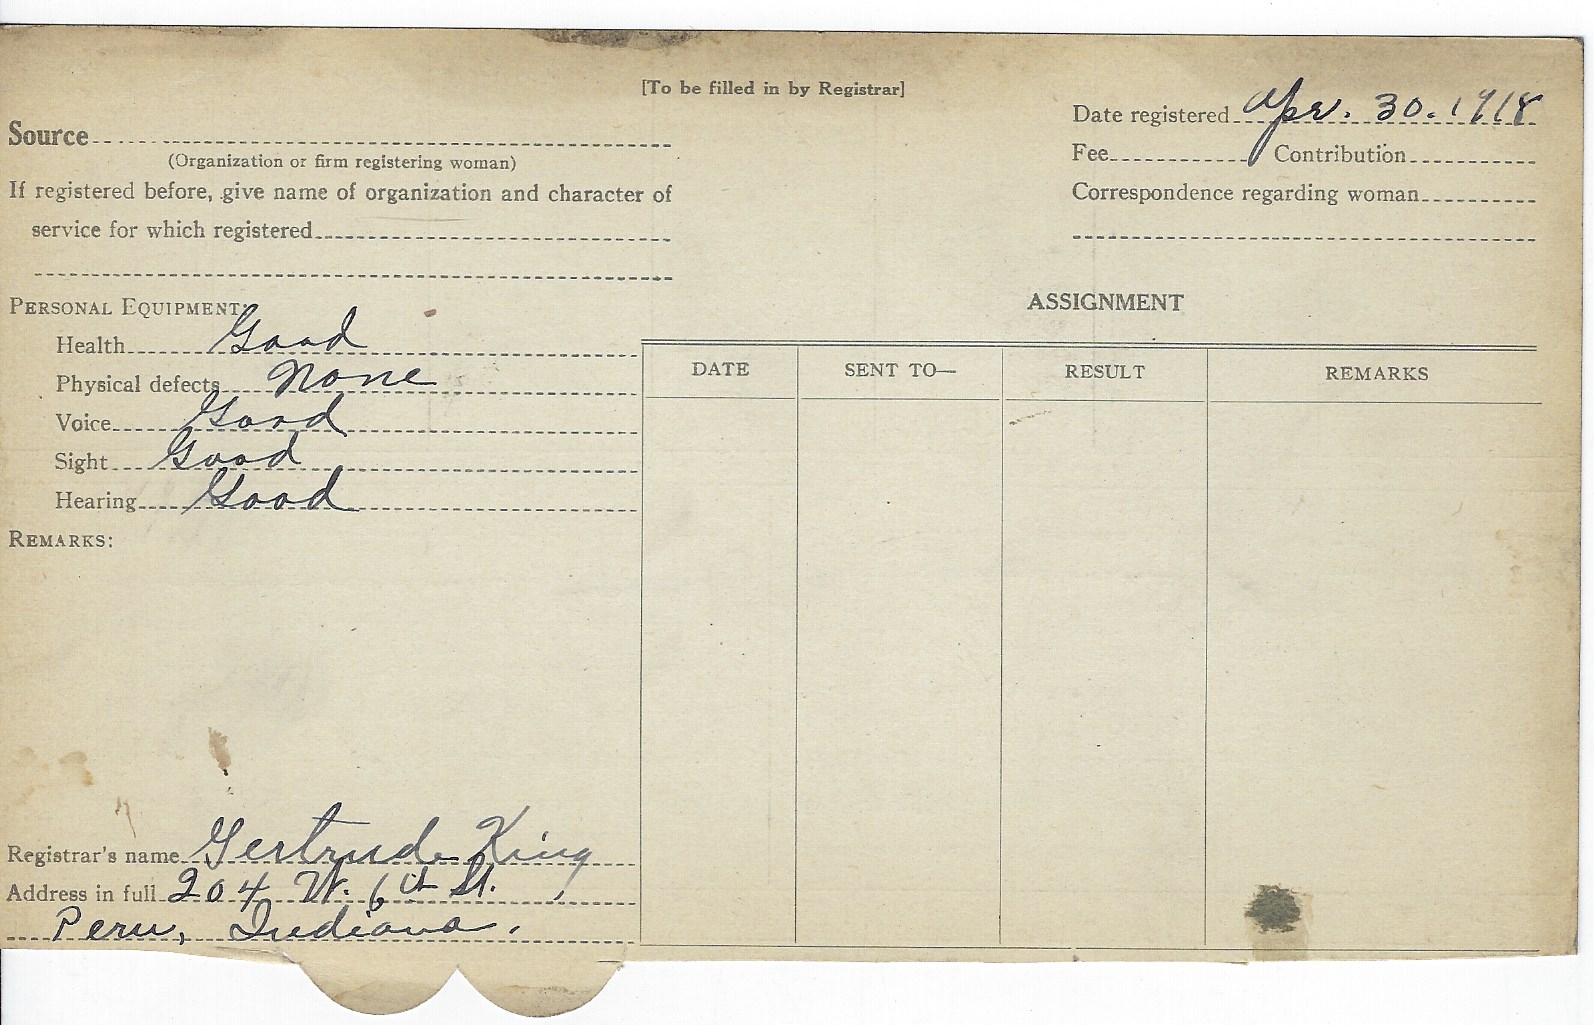 [To be filled in by Registrar]
Source
(Organization or firm registering woman)
If registered before, give name of organization and character of
service for which registered
Date registered Apr. 30. 1918
Fee Contribution
Correspondence regarding woman
PERSONAL EQUIPMENT:
Health Good
Physical defects None
Voice Good
Sight Good
Hearing Good
REMARKS:
Registrar's name Gertrude King
Address in full 204 W. 6th St.,
Peru, Indiana.
ASSIGNMENT
DATE SENT TO— RESULT REMARKS